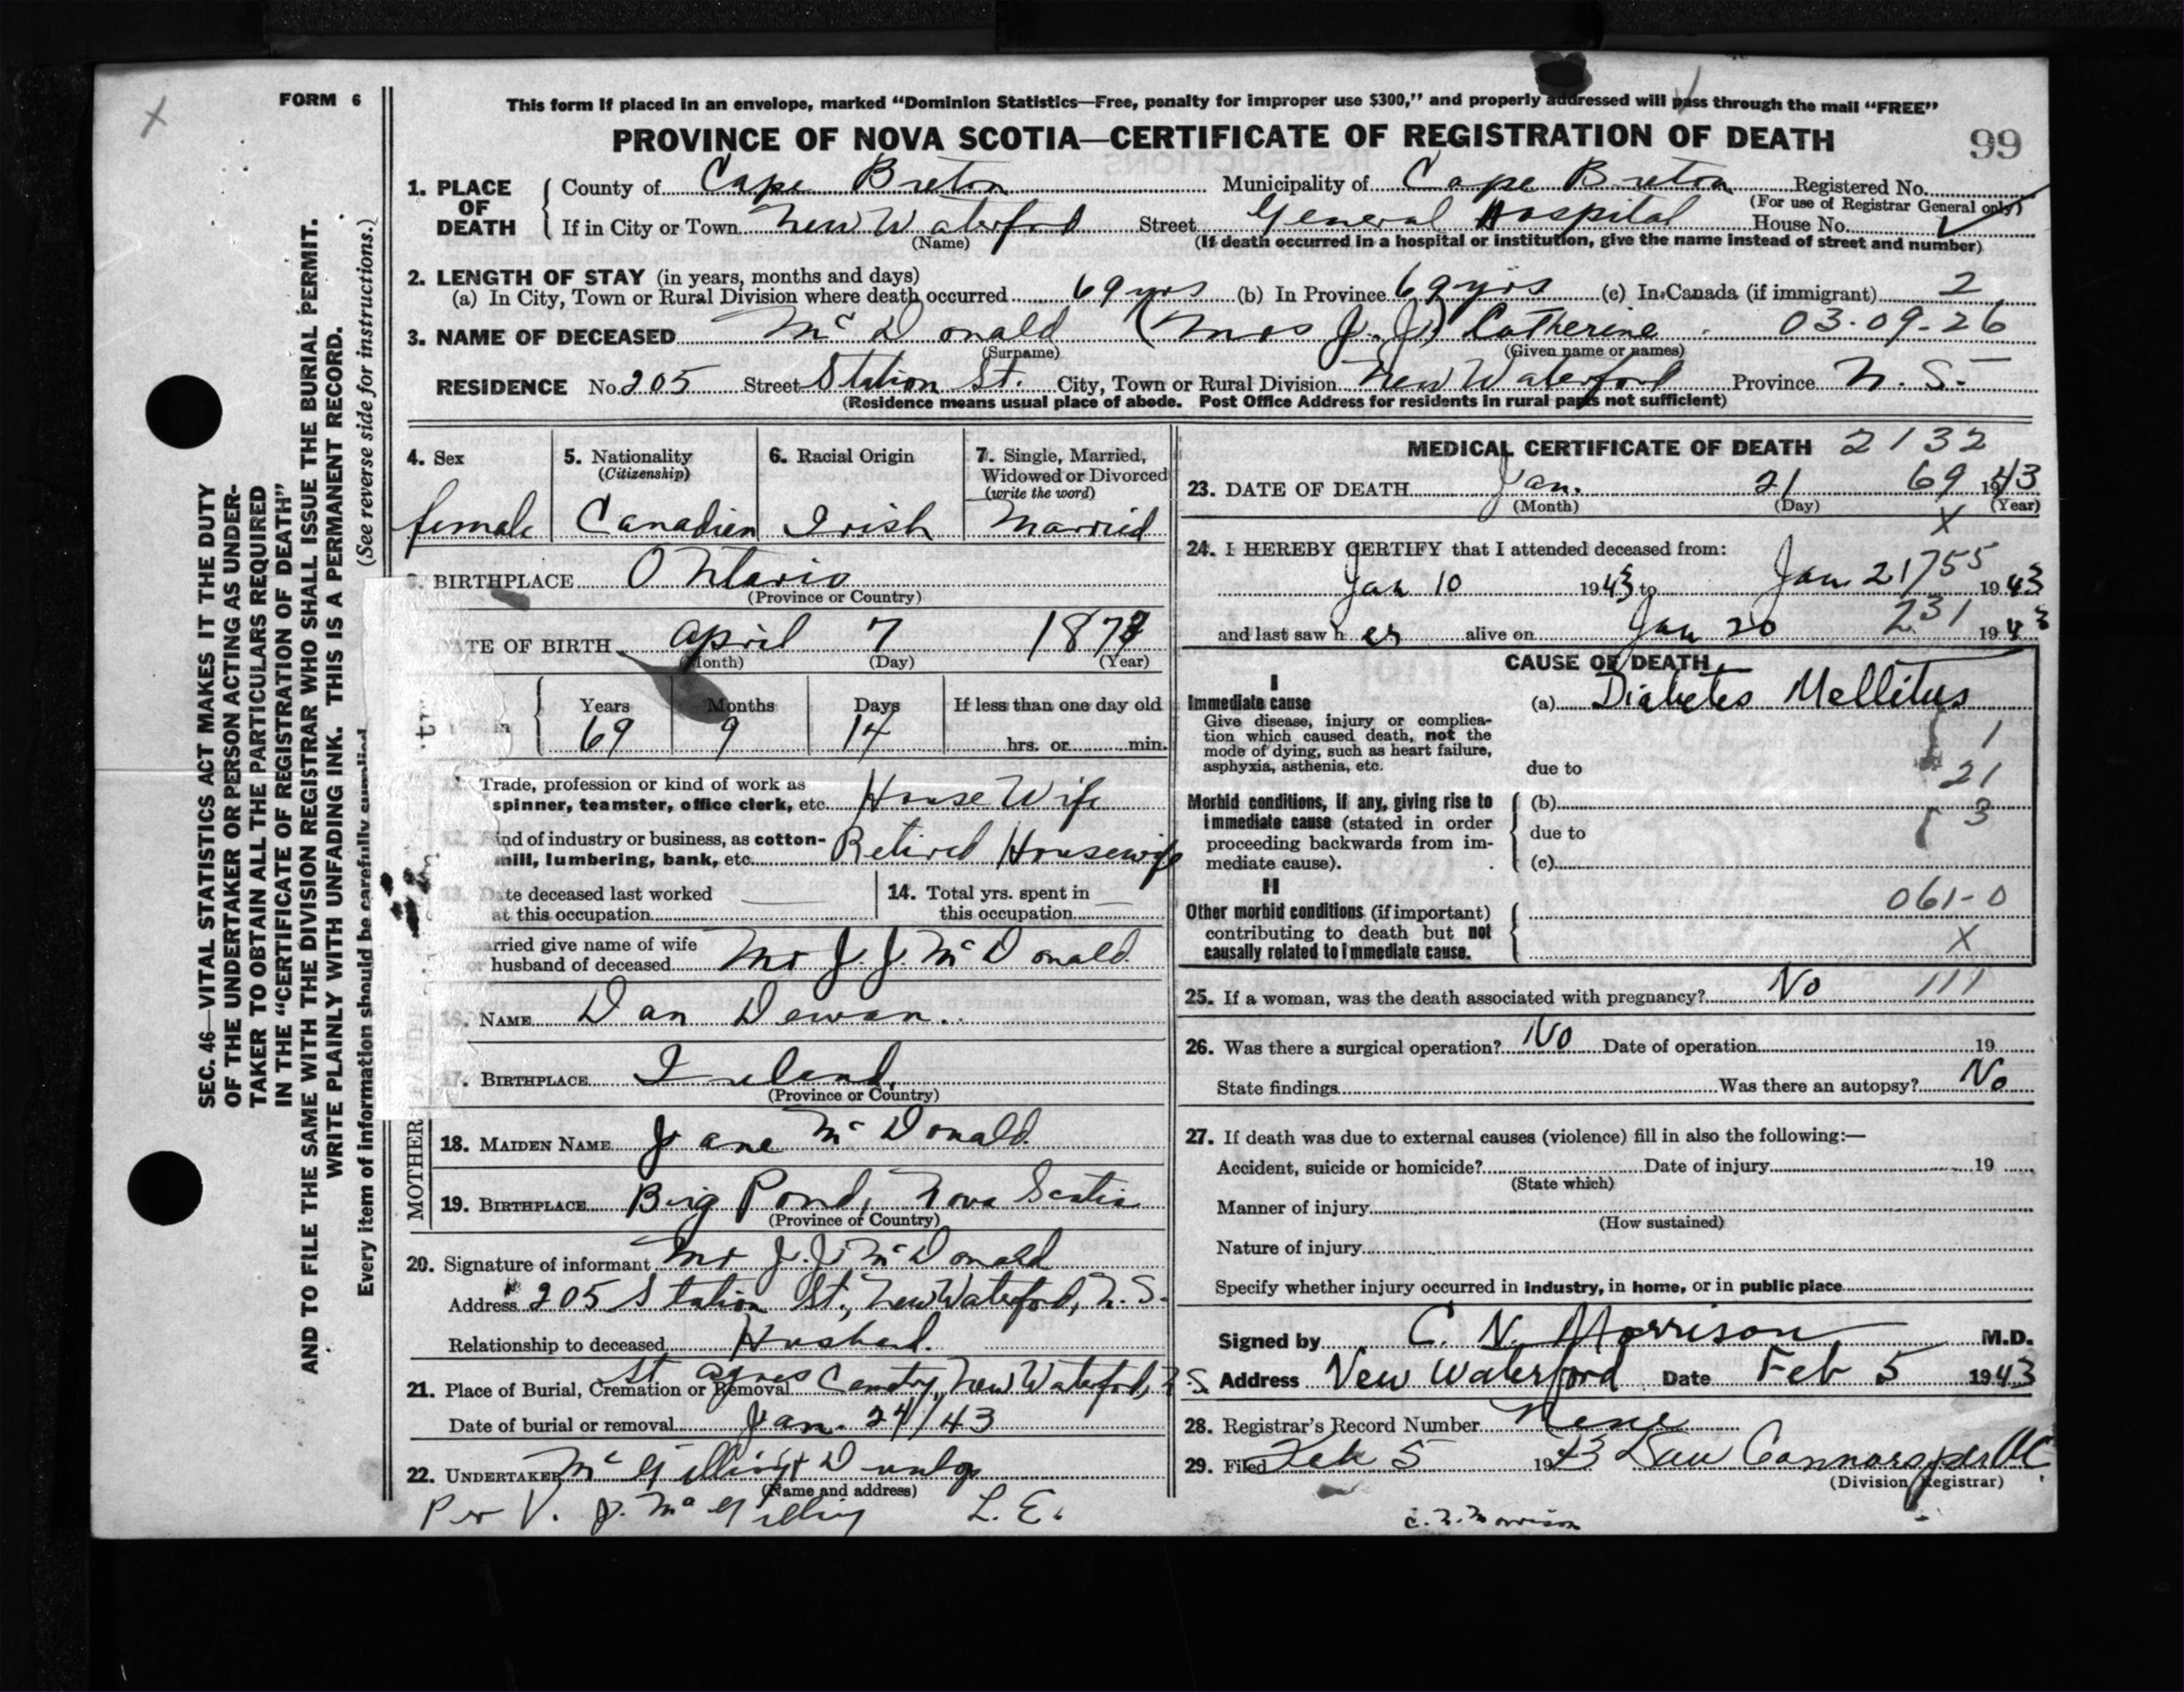 FORM 6
This form if placed in an envelope, marked "Dominion Statistics—Free, penalty for improper use $300," and properly addressed will pass through the mail "FREE"
PROVINCE OF NOVA SCOTIA—CERTIFICATE OF REGISTRATION OF DEATH
99
SEC. 46—VITAL STATISTICS ACT MAKES IT THE DUTY
OF THE UNDERTAKER OR PERSON ACTING AS UNDER-
TAKER TO OBTAIN ALL THE PARTICULARS REQUIRED
IN THE "CERTIFICATE OF REGISTRATION OF DEATH"
AND TO FILE THE SAME WITH THE DIVISION REGISTRAR WHO SHALL ISSUE THE BURIAL PERMIT.
WRITE PLAINLY WITH UNFADING INK. THIS IS A PERMANENT RECORD.
Every item of information should be carefully supplied. (See reverse side for instructions.)
1. PLACE OF DEATH
County of Cape Breton Municipality of Cape Breton Registered No.
(For use of Registrar General only)
If in City or Town New Waterford Street General Hospital House No.
(Name) (If death occurred in a hospital or institution, give the name instead of street and number)
2. LENGTH OF STAY (in years, months and days)
(a) In City, Town or Rural Division where death occurred 69 yrs (b) In Province 69 yrs (c) In Canada (if immigrant) 2
3. NAME OF DECEASED McDonald (Mrs J. J.) Catherine 03-09-26
(Surname) (Given name or names)
RESIDENCE No. 205 Street Station St. City, Town or Rural Division New Waterford Province N. S.
(Residence means usual place of abode. Post Office Address for residents in rural parts not sufficient)
4. Sex
female
5. Nationality
(Citizenship)
Canadien
6. Racial Origin
Irish
7. Single, Married,
Widowed or Divorced
(write the word)
Married
BIRTHPLACE Ontario
(Province or Country)
DATE OF BIRTH April 7 1873
(Month) (Day) (Year)
Years Months Days If less than one day old
69 9 14 hrs. or min.
11. Trade, profession or kind of work as
spinner, teamster, office clerk, etc. House Wife
12. Kind of industry or business, as cotton-
mill, lumbering, bank, etc. Retired Housewife
13. Date deceased last worked
at this occupation
14. Total yrs. spent in
this occupation
married give name of wife
or husband of deceased Mr J. J. McDonald
16. NAME Dan Dewan
17. BIRTHPLACE Ireland
(Province or Country)
MOTHER
18. MAIDEN NAME Jane McDonald
19. BIRTHPLACE Big Pond, Nova Scotia
(Province or Country)
20. Signature of informant Mr J. J. McDonald
Address 205 Station St., New Waterford, N. S.
Relationship to deceased Husband.
21. Place of Burial, Cremation or Removal St Agnes Cemetry, New Waterford, N S.
Date of burial or removal Jan. 24/43
22. UNDERTAKER
(Name and address)
Per V. J. L. E.
MEDICAL CERTIFICATE OF DEATH 2132
23. DATE OF DEATH Jan. 21 69 1943
(Month) (Day) (Year)
X
24. I HEREBY CERTIFY that I attended deceased from:
Jan 10 1943 to Jan 21 755 1943
and last saw her alive on Jan 20 231 1943
CAUSE OF DEATH
I
Immediate cause
Give disease, injury or complica-
tion which caused death, not the
mode of dying, such as heart failure,
asphyxia, asthenia, etc.
(a) Diabetes Mellitus
1
due to 21
Morbid conditions, if any, giving rise to
immediate cause (stated in order
proceeding backwards from im-
mediate cause).
(b)
due to 3
(c)
II
Other morbid conditions (if important)
contributing to death but not
causally related to immediate cause.
061-0
X
25. If a woman, was the death associated with pregnancy? No 111
26. Was there a surgical operation? No Date of operation 19
State findings Was there an autopsy? No
27. If death was due to external causes (violence) fill in also the following:—
Accident, suicide or homicide? Date of injury 19
(State which)
Manner of injury
(How sustained)
Nature of injury
Specify whether injury occurred in industry, in home, or in public place
Signed by C. N. Morrison M.D.
Address New Waterford Date Feb 5 1943
28. Registrar's Record Number
29. Filed Feb 5 1943 Dan Connors per
(Division Registrar)
C. N. Morrison